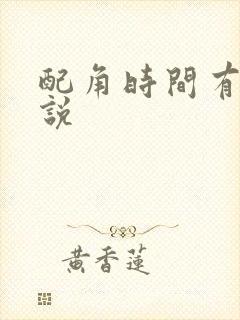 配角時間有
説
黃香蓮